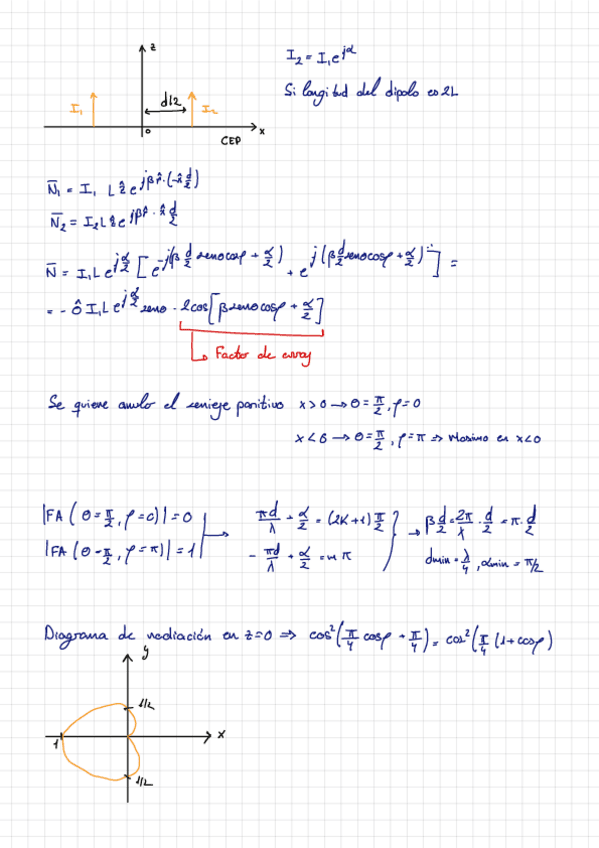 z
I₂ = I₁e^{jα}
Si longitud del dipolo es 2L
I₁
d/2
I₂
0
x
CEP
N̄₁ = I₁ L ẑ e^{jβ r̂·(-x̂ d/2)}
N̄₂ = I₂ L ẑ e^{jβ r̂·x̂ d/2}
N̄ = I₁ L e^{j α/2} [e^{-j(β d/2 senθ cosφ + α/2)} + e^{j(β d/2 senθ cosφ + α/2)}] =
= - θ̂ I₁ L e^{j α/2} senθ · 2cos[β senθ cosφ + α/2]
Factor de array
Se quiere anular el semieje positivo x>0 → θ = π/2, φ = 0
x<0 → θ = π/2, φ = π ⇒ Máximo es x<0
|FA(θ = π/2, φ = 0)| = 0
πd/λ + α/2 = (2K+1) π/2
β d/2 = 2π/λ · d/2 = π · d/2
|FA(θ = π/2, φ = π)| = 1
- πd/λ + α/2 = m π
dmin = λ/4, αmin = π/2
Diagrama de radiación en z=0 ⇒ cos²(π/4 cosφ + π/4) = cos²(π/4 (1+cosφ)
y
1/2
x
1
1/2